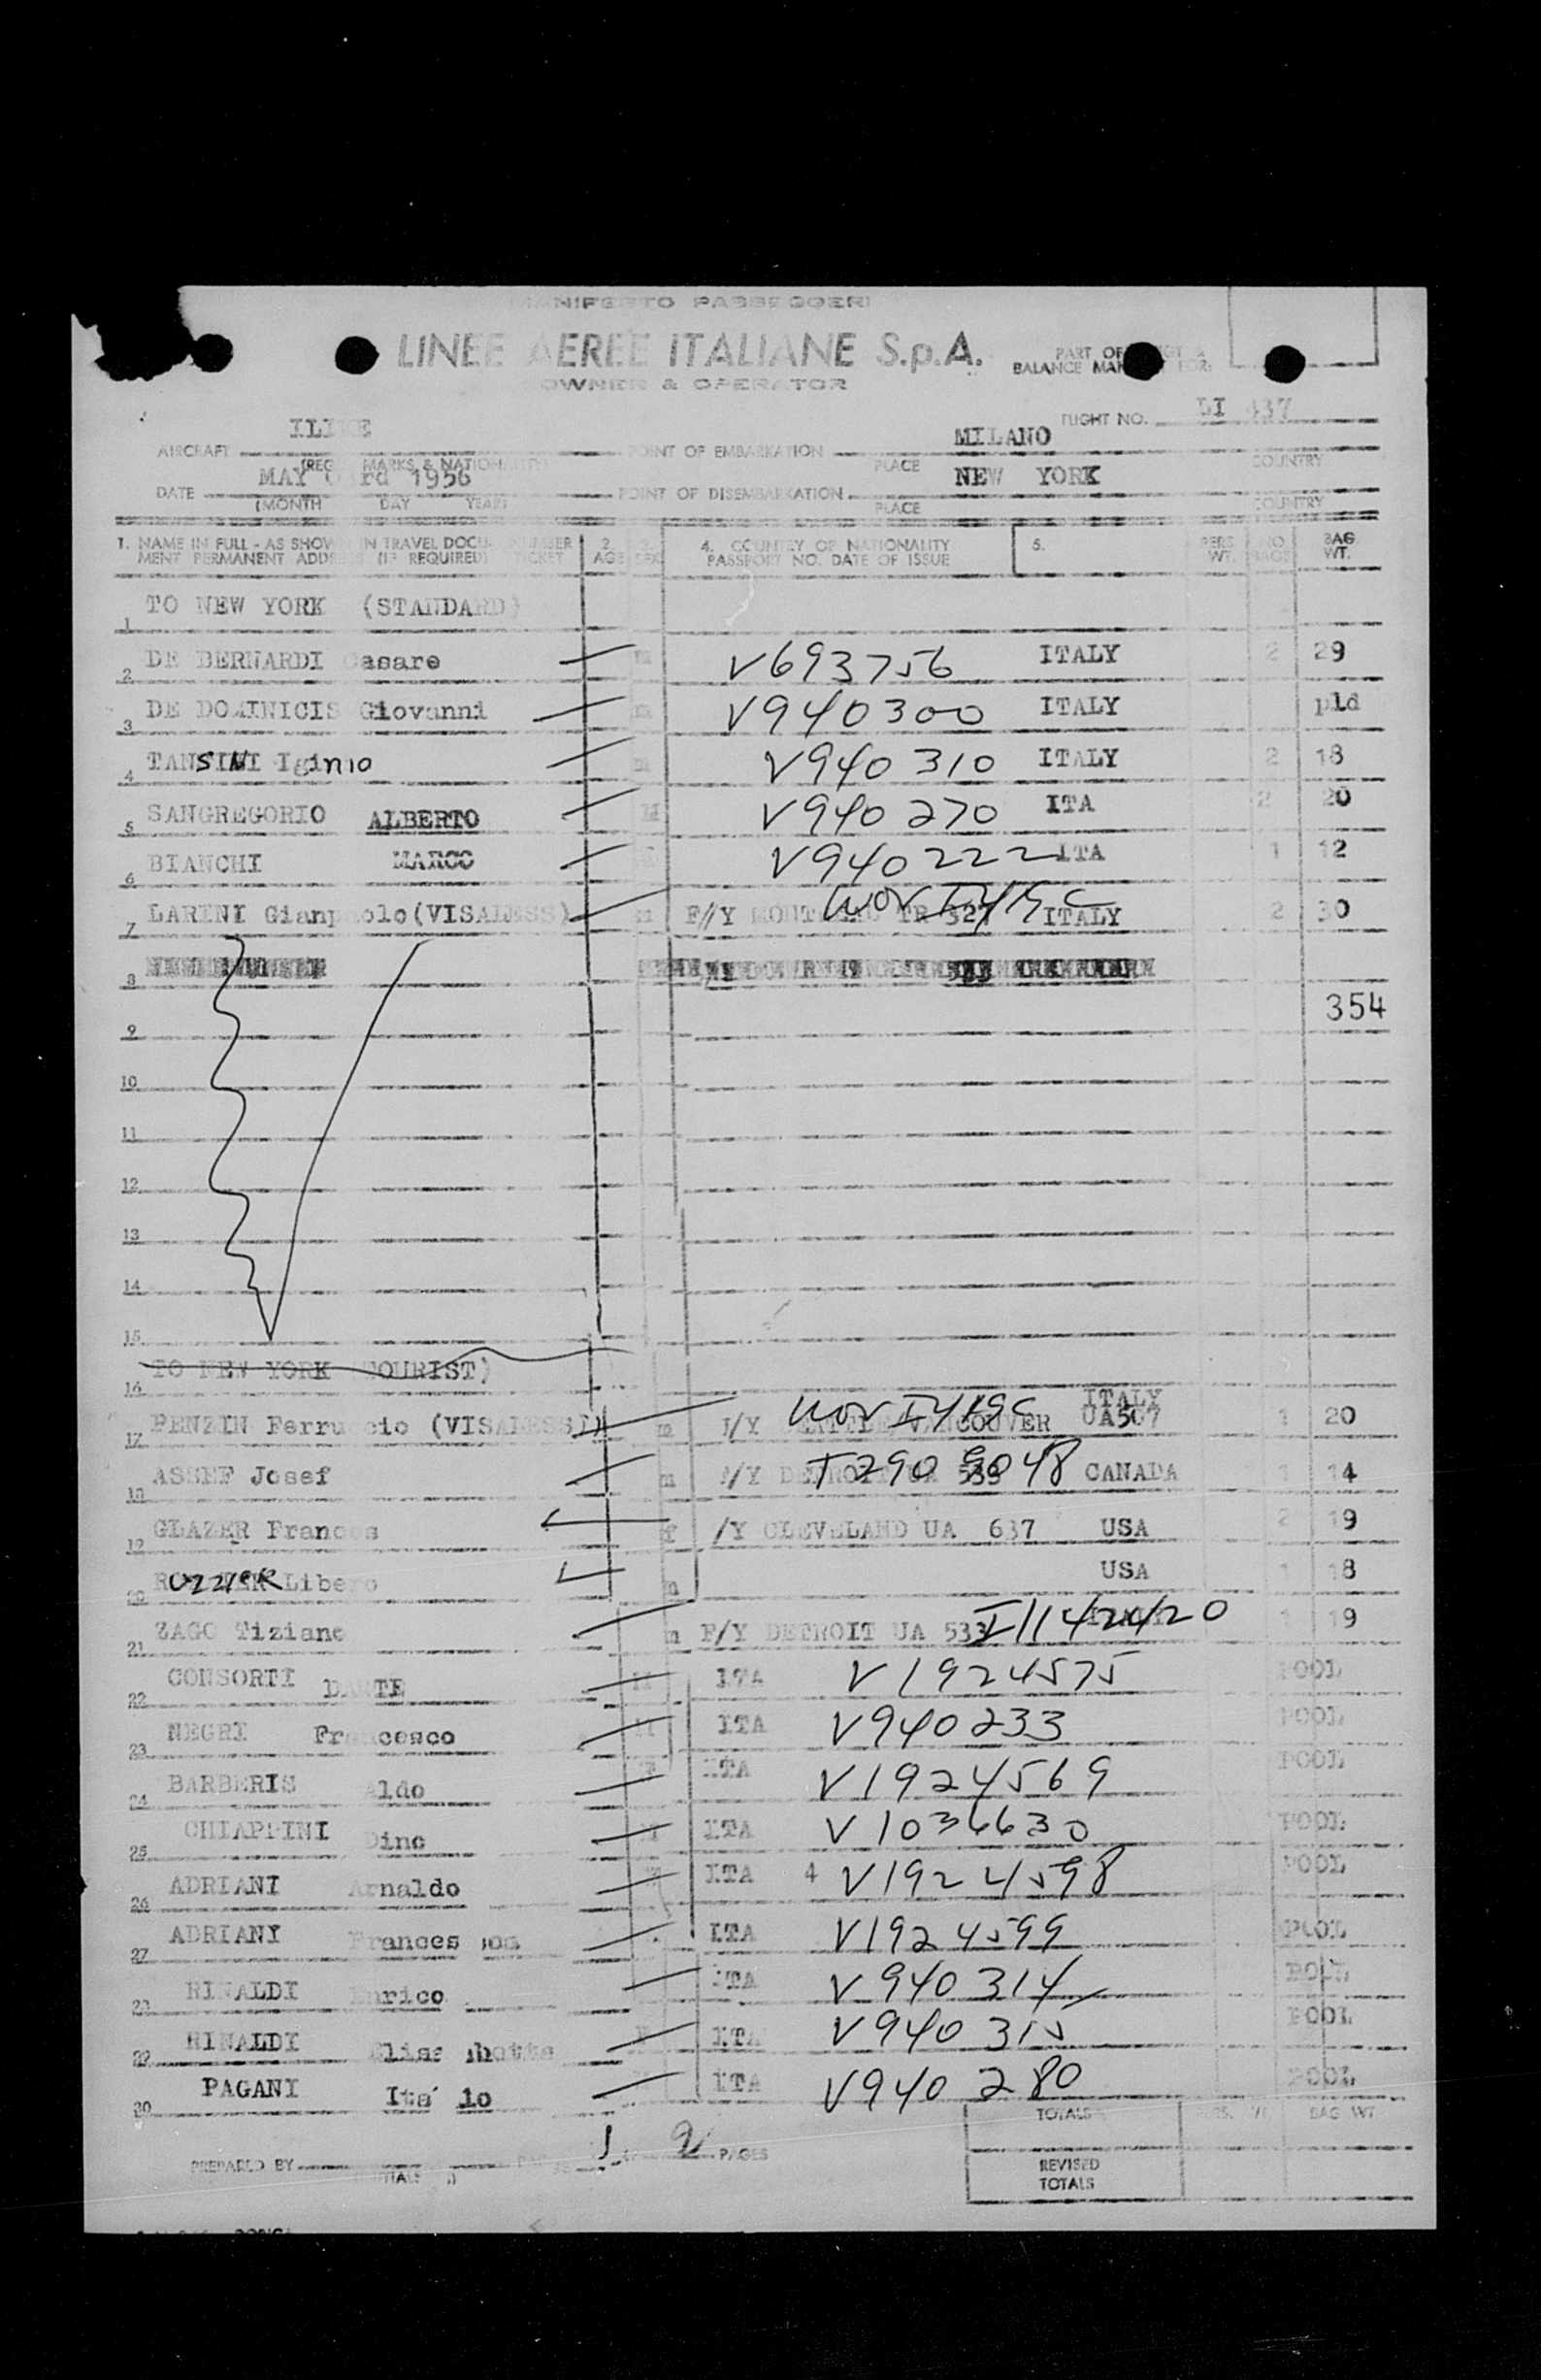 MANIFESTO PASSEGGERI
LINEE AEREE ITALIANE S.p.A.
OWNER & OPERATOR
PART OF
BALANCE FOR:
FLIGHT NO. LI 437
AIRCRAFT
(REG MARKS & NATIONALITY)
POINT OF EMBARKATION MILANO
PLACE
COUNTRY
DATE MAY rd 1956
(MONTH DAY YEAR)
POINT OF DISEMBARKATION NEW YORK
PLACE
COUNTRY
1. NAME IN FULL - AS SHOWN IN TRAVEL DOCU- NUMBER
MENT PERMANENT ADDRESS (IF REQUIRED) TICKET
2. AGE
SEX
4. COUNTRY OF NATIONALITY
PASSPORT NO. DATE OF ISSUE
5.
PERS WT.
NO BAGS
BAG WT.
1 TO NEW YORK (STANDARD)
2 DE BERNARDI Casare m V693756 ITALY 2 29
3 DE DOMINICIS Giovanni m V940300 ITALY pld
4 TANSINI Iginio m V940310 ITALY 2 18
5 SANGREGORIO ALBERTO M V940270 ITA 2 20
6 BIANCHI MARCO V940222 ITA 1 12
7 LARINI Gianpaolo (VISALESS) F//Y ITALY 2 30
8
9 354
10
11
12
13
14
15
16 TO NEW YORK TOURIST)
17 BENZIN Ferruccio (VISALESS) m /Y SEATTLE/VANCOUVER UA507 ITALY 1 20
18 ASSEF Josef m /Y DETROIT UA 533 T2909048 CANADA 1 14
19 GLAZER Frances f /Y CLEVELAND UA 637 USA 2 19
20 Libero m USA 1 18
21 ZAGO Tiziano m F/Y DETROIT UA 533 I1142420 1 19
22 CONSORTI DANTE M ITA V1924575 POOL
23 NEGRI Francesco M ITA V940233 POOL
24 BARBERIS Aldo ITA V1924569 POOL
25 CHIAPPINI Dino ITA V1036630 POOL
26 ADRIANI Arnaldo ITA 4 V1924598 POOL
27 ADRIANI Frances ITA V1924599 POOL
28 RINALDI Enrico ITA V940314 POOL
29 RINALDI ITA V940315 POOL
30 PAGANI Ita lo ITA V940280 POOL
PREPARED BY
INITIALS
1 2 PAGES
TOTALS PERS. WT BAG WT
REVISED
TOTALS